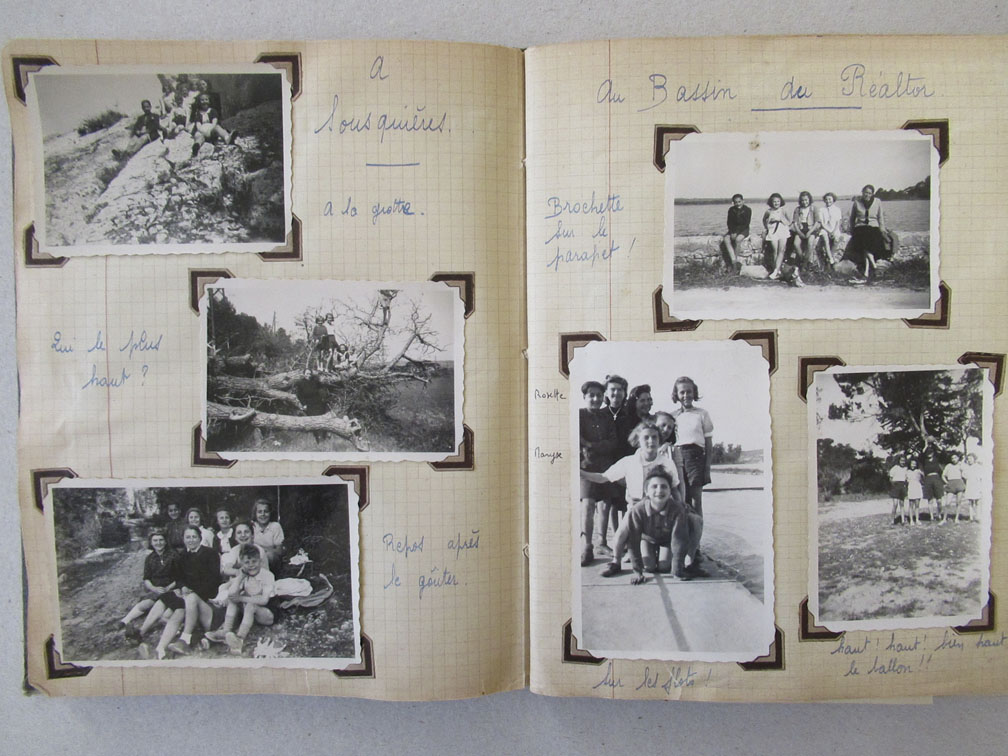 A
Sousquières.
A la grotte.
Qui le plus
haut ?
Repos après
le goûter.
Au Bassin du Réaltor
Brochette
sur le
parapet !
Rosette
Maryse
sur les flots !
haut ! haut ! bien haut
le ballon !!